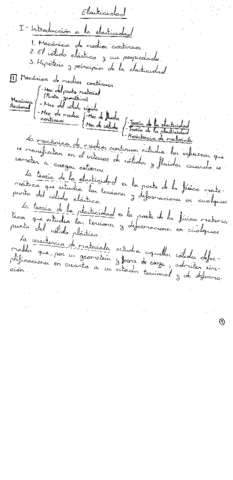 Elasticidad
I- Introducción a la elasticidad
1. Mecánica de medios continuos
2. El sólido elástico y sus propiedades
3. Hipótesis y principios de la elasticidad
1 Mecánica de medios continuos
Mecánica Racional
- Mec. del punto material
(Punto geométrico)
- Mec. del sólido rígido
- Mec. de medios continuos
- Mec. de fluidos
- Mec. de sólidos
Teoría de la elasticidad
Teoría de la plasticidad
Resistencia de materiales
La mecánica de medios continuos estudia los esfuerzos que
se manifiestan en el interior de sólidos y fluidos cuando se
someten a cargas externas.
La teoría de la elasticidad es la parte de la física mate-
mática que estudia las tensiones y deformaciones en cualquier
punto del sólido elástico.
La teoría de la plasticidad es la parte de la física matemá-
tica que estudia las tensiones y deformaciones en cualquier
punto del sólido plástico.
La resistencia de materiales estudia aquellos sólidos defor-
mables que, por su geometría y forma de carga, admiten sim-
plificaciones en cuanto a su estado tensional y de deforma-
ción.